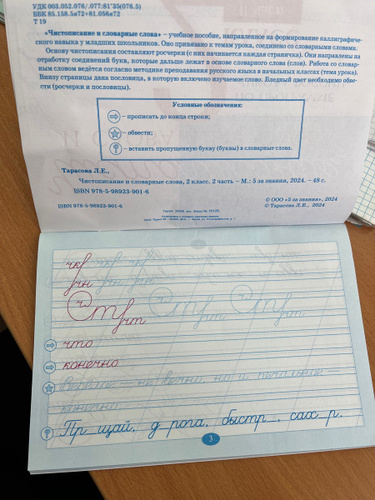 УДК 003.052.076/.077:81'35(076.5)
ББК 85.158.5я72+81.056я72
Т 19
«Чистописание и словарные слова» – учебное пособие, направленное на формирование каллиграфиче-
ского навыка у младших школьников. Оно привязано к темам урока, соединено со словарными словами.
Основу чистописания составляют росчерки (с них начинается каждая страничка). Они направлены на
отработку соединений букв, которые дальше лежат в основе словарного слова (слов). Работа со словар-
ным словом ведётся согласно методике преподавания русского языка в начальных классах (тема урока).
Внизу страницы дана пословица, в которую включено изучаемое слово. Бледный цвет необходимо обве-
сти (росчерки и пословицы).
Условные обозначения:
– прописать до конца строки;
– обвести;
– вставить пропущенную букву (буквы) в словарные слова.
Тарасова Л.Е.,
Чистописание и словарные слова, 2 класс. 2 часть – М.: 5 за знания, 2024. – 48 с.
ISBN 978-5-98923-901-6
ISBN 978-5-98923-901-6
© ООО «5 за знания», 2024
© Тарасова Л.Е., 2024
чн
что
конечно
Пр_щай, д_рога, быстр_, сах_р.
3